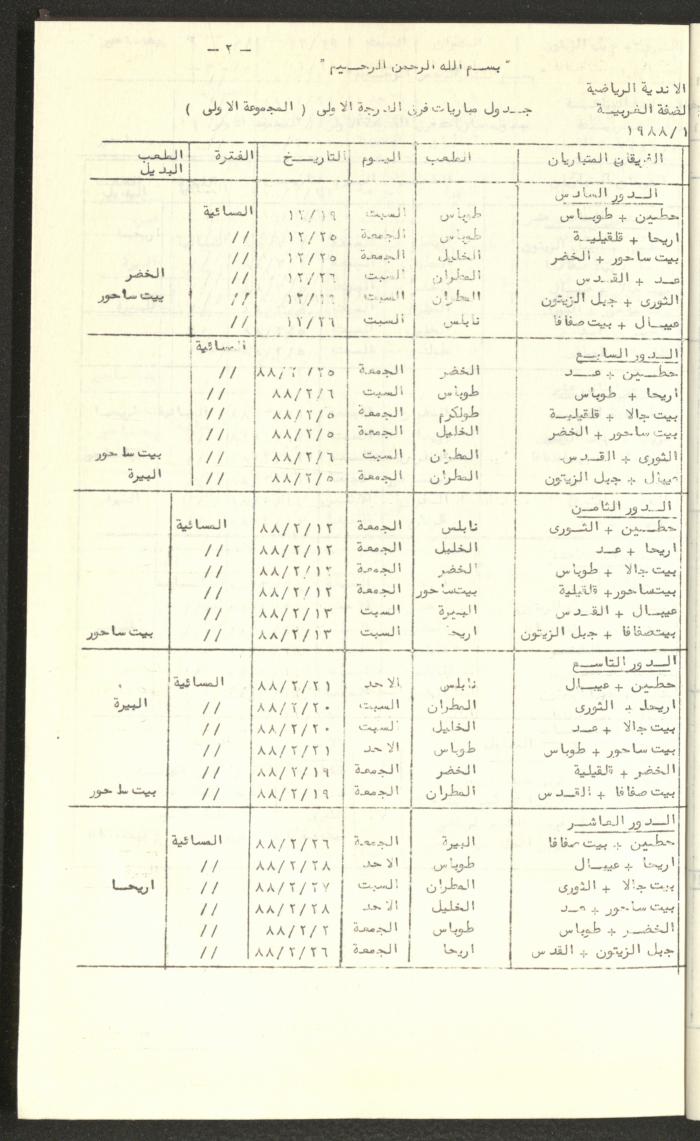 - ٢ -
" بسم الله الرحمن الرحيم "
الاندية الرياضية
لضفة الغربية
جدول مباريات فرق الدرجة الاولى ( المجموعة الاولى )
١٩٨٨/١
الفريقان المتباريان الملعب اليوم التاريخ الفترة الملعب البديل
الدور السادس
حطين + طوباس طوباس السبت ١٢/١٩ المسائية
اريحا + قلقيلية طوباس الجمعة ١٢/٢٥ //
بيت ساحور + الخضر الخليل الجمعة ١٢/٢٥ //
عبد + القدس المطران السبت ١٢/٢٦ // الخضر
الثورى + جبل الزيتون المطران السبت // بيت ساحور
عيبال + بيت صفافا نابلس السبت ١٢/٢٦ //
الدور السابع المسائية
حطين + عبد الخضر الجمعة //
اريحا + طوباس طوباس السبت ٨٨/٢/٦ //
بيت جالا + قلقيلية طولكرم الجمعة ٨٨/٢/٥ //
بيت ساحور + الخضر الخليل الجمعة ٨٨/٢/٥ //
الثورى + القدس المطران السبت ٨٨/٢/٦ // بيت ساحور
عيبال + جبل الزيتون المطران الجمعة ٨٨/٢/٥ // البيرة
الدور الثامن
حطين + الثورى نابلس الجمعة ٨٨/٢/١٢ المسائية
اريحا + عبد الخليل الجمعة ٨٨/٢/١٢ //
بيت جالا + طوباس الخضر الجمعة ٨٨/٢/١٢ //
بيتساحور + قلقيلية بيتساحور الجمعة ٨٨/٢/١٢ //
عيبال + القدس البيرة السبت ٨٨/٢/١٣ //
بيتصفافا + جبل الزيتون اريحا السبت ٨٨/٢/١٣ // بيت ساحور
الدور التاسع
حطين + عيبال نابلس الاحد ٨٨/٢/٢١ المسائية
اريحا + الثورى المطران السبت ٨٨/٢/٢٠ // البيرة
بيت جالا + عبد الخليل السبت ٨٨/٢/٢٠ //
بيت ساحور + طوباس طوباس الاحد ٨٨/٢/٢١ //
الخضر + قلقيلية الخضر الجمعة ٨٨/٢/١٩ //
بيت صفافا + القدس المطران الجمعة ٨٨/٢/١٩ // بيت ساحور
الدور العاشر
حطين + بيت صفافا البيرة الجمعة ٨٨/٢/٢٦ المسائية
اريحا + عيبال طوباس الاحد ٨٨/٢/٢٨ //
بيت جالا + الثورى المطران السبت ٨٨/٢/٢٧ // اريحا
بيت ساحور + عبد الخليل الاحد ٨٨/٢/٢٨ //
الخضر + طوباس طوباس الجمعة ٨٨/٢/٢ //
جبل الزيتون + القدس اريحا الجمعة ٨٨/٢/٢٦ //